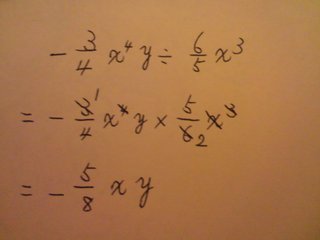 - 3/4 x⁴ y ÷ 6/5 x³
= - 3̶¹/4 x⁴̶ y × 5/6̶₂ x̶³̶
= - 5/8 x y